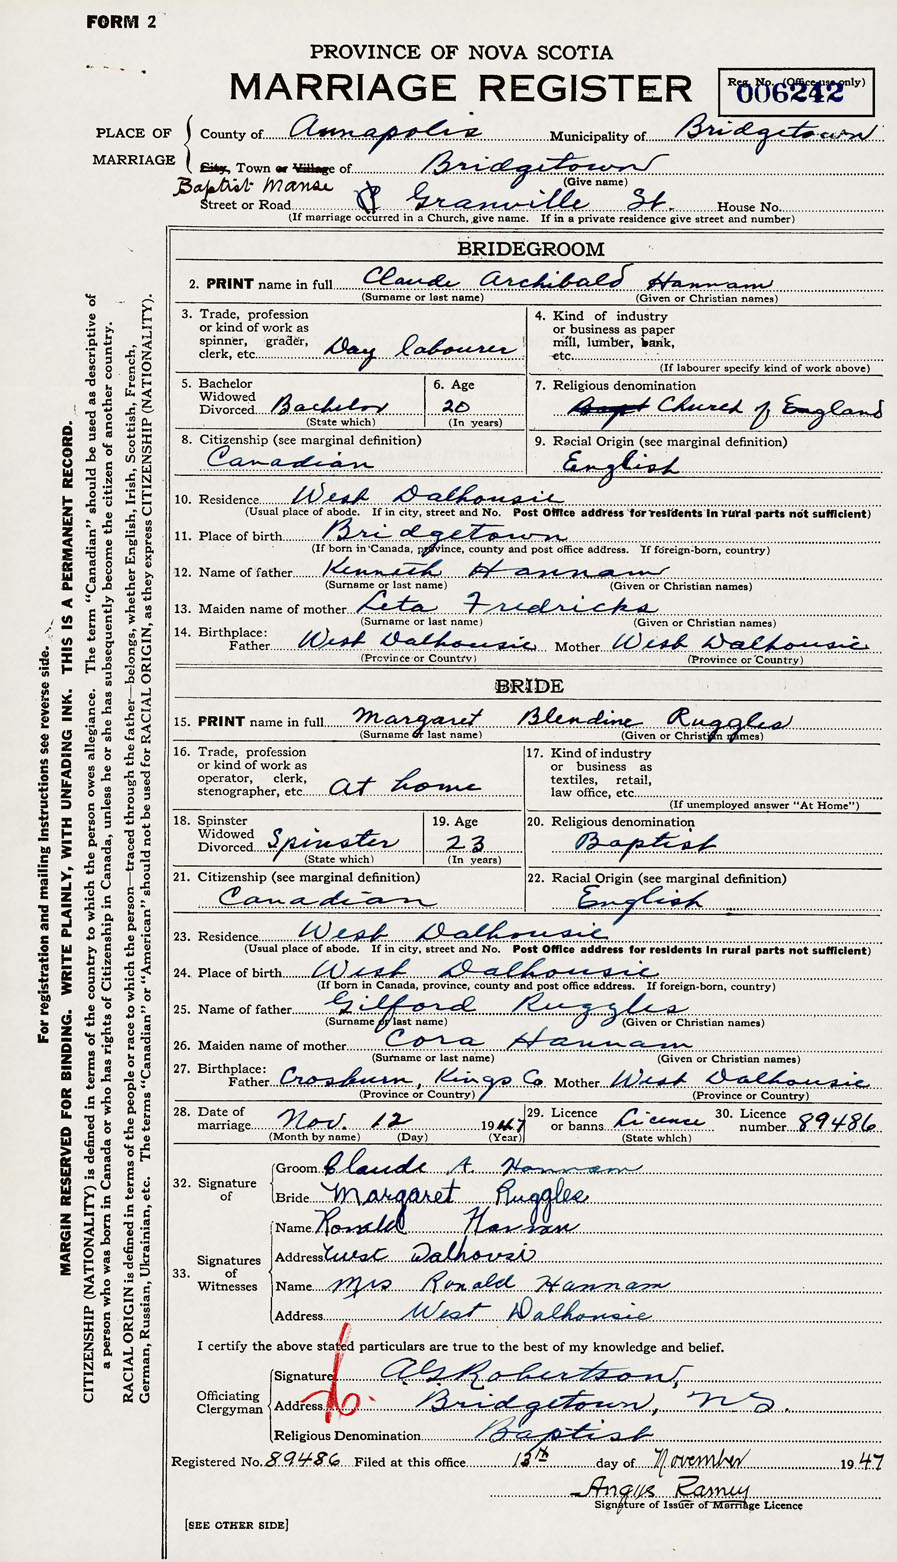 FORM 2
PROVINCE OF NOVA SCOTIA
MARRIAGE REGISTER
Reg. No. (Office use only)
006242
PLACE OF MARRIAGE
County of Annapolis Municipality of Bridgetown
City, Town or Village of Bridgetown
(Give name)
Baptist Manse
Street or Road Granville St. House No.
(If marriage occurred in a Church, give name. If in a private residence give street and number)
BRIDEGROOM
2. PRINT name in full Claude Archibald Hannam
(Surname or last name) (Given or Christian names)
3. Trade, profession or kind of work as spinner, grader, clerk, etc. Day labourer
4. Kind of industry or business as paper mill, lumber, bank, etc.
(If labourer specify kind of work above)
5. Bachelor Widowed Divorced Bachelor
(State which)
6. Age 20
(In years)
7. Religious denomination
Bapt Church of England
8. Citizenship (see marginal definition)
Canadian
9. Racial Origin (see marginal definition)
English
10. Residence West Dalhousie
(Usual place of abode. If in city, street and No. Post Office address for residents in rural parts not sufficient)
11. Place of birth Bridgetown
(If born in Canada, province, county and post office address. If foreign-born, country)
12. Name of father Kenneth Hannam
(Surname or last name) (Given or Christian names)
13. Maiden name of mother Leta Fredricks
(Surname or last name) (Given or Christian names)
14. Birthplace:
Father West Dalhousie Mother West Dalhousie
(Province or Country) (Province or Country)
BRIDE
15. PRINT name in full Margaret Blendine Ruggles
(Surname or last name) (Given or Christian names)
16. Trade, profession or kind of work as operator, clerk, stenographer, etc. At home
17. Kind of industry or business as textiles, retail, law office, etc.
(If unemployed answer "At Home")
18. Spinster Widowed Divorced Spinster
(State which)
19. Age 23
(In years)
20. Religious denomination
Baptist
21. Citizenship (see marginal definition)
Canadian
22. Racial Origin (see marginal definition)
English
23. Residence West Dalhousie
(Usual place of abode. If in city, street and No. Post Office address for residents in rural parts not sufficient)
24. Place of birth West Dalhousie
(If born in Canada, province, county and post office address. If foreign-born, country)
25. Name of father Gilford Ruggles
(Surname or last name) (Given or Christian names)
26. Maiden name of mother Cora Hannam
(Surname or last name) (Given or Christian names)
27. Birthplace:
Father Crosburn, Kings Co Mother West Dalhousie
(Province or Country) (Province or Country)
28. Date of marriage Nov. 12 1947
(Month by name) (Day) (Year)
29. Licence or banns Licence
(State which)
30. Licence number 89486
32. Signature of
Groom Claude A. Hannam
Bride Margaret Ruggles
33. Signatures of Witnesses
Name Ronald Hannan
Address West Dalhousi
Name Mrs Ronald Hannam
Address West Dalhousie
I certify the above stated particulars are true to the best of my knowledge and belief.
Officiating Clergyman
Signature A.G. Robertson,
Address Bridgetown, N.S.
Religious Denomination Baptist
Registered No. 89486 Filed at this office 13th day of November 1947
Angus Ramey
Signature of Issuer of Marriage Licence
[SEE OTHER SIDE]
For registration and mailing instructions see reverse side.
MARGIN RESERVED FOR BINDING. WRITE PLAINLY, WITH UNFADING INK. THIS IS A PERMANENT RECORD.
CITIZENSHIP (NATIONALITY) is defined in terms of the country to which the person owes allegiance. The term "Canadian" should be used as descriptive of
a person who was born in Canada or who has rights of Citizenship in Canada, unless he or she has subsequently become the citizen of another country.
RACIAL ORIGIN is defined in terms of the people or race to which the person—traced through the father—belongs, whether English, Irish, Scottish, French,
German, Russian, Ukrainian, etc. The terms "Canadian" or "American" should not be used for RACIAL ORIGIN, as they express CITIZENSHIP (NATIONALITY).